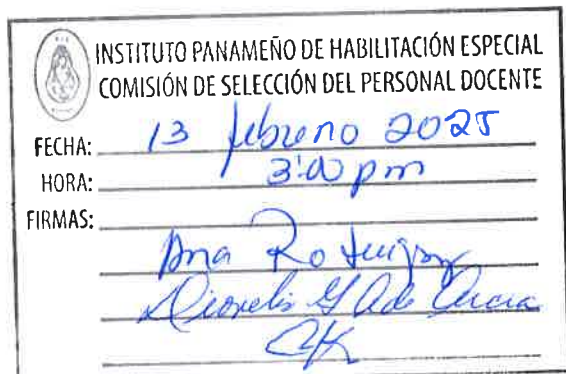 INSTITUTO PANAMEÑO DE HABILITACIÓN ESPECIAL
COMISIÓN DE SELECCIÓN DEL PERSONAL DOCENTE
FECHA: 13 febrero 2025
HORA: 3:00 pm
FIRMAS:
Ana
Dionelis G de